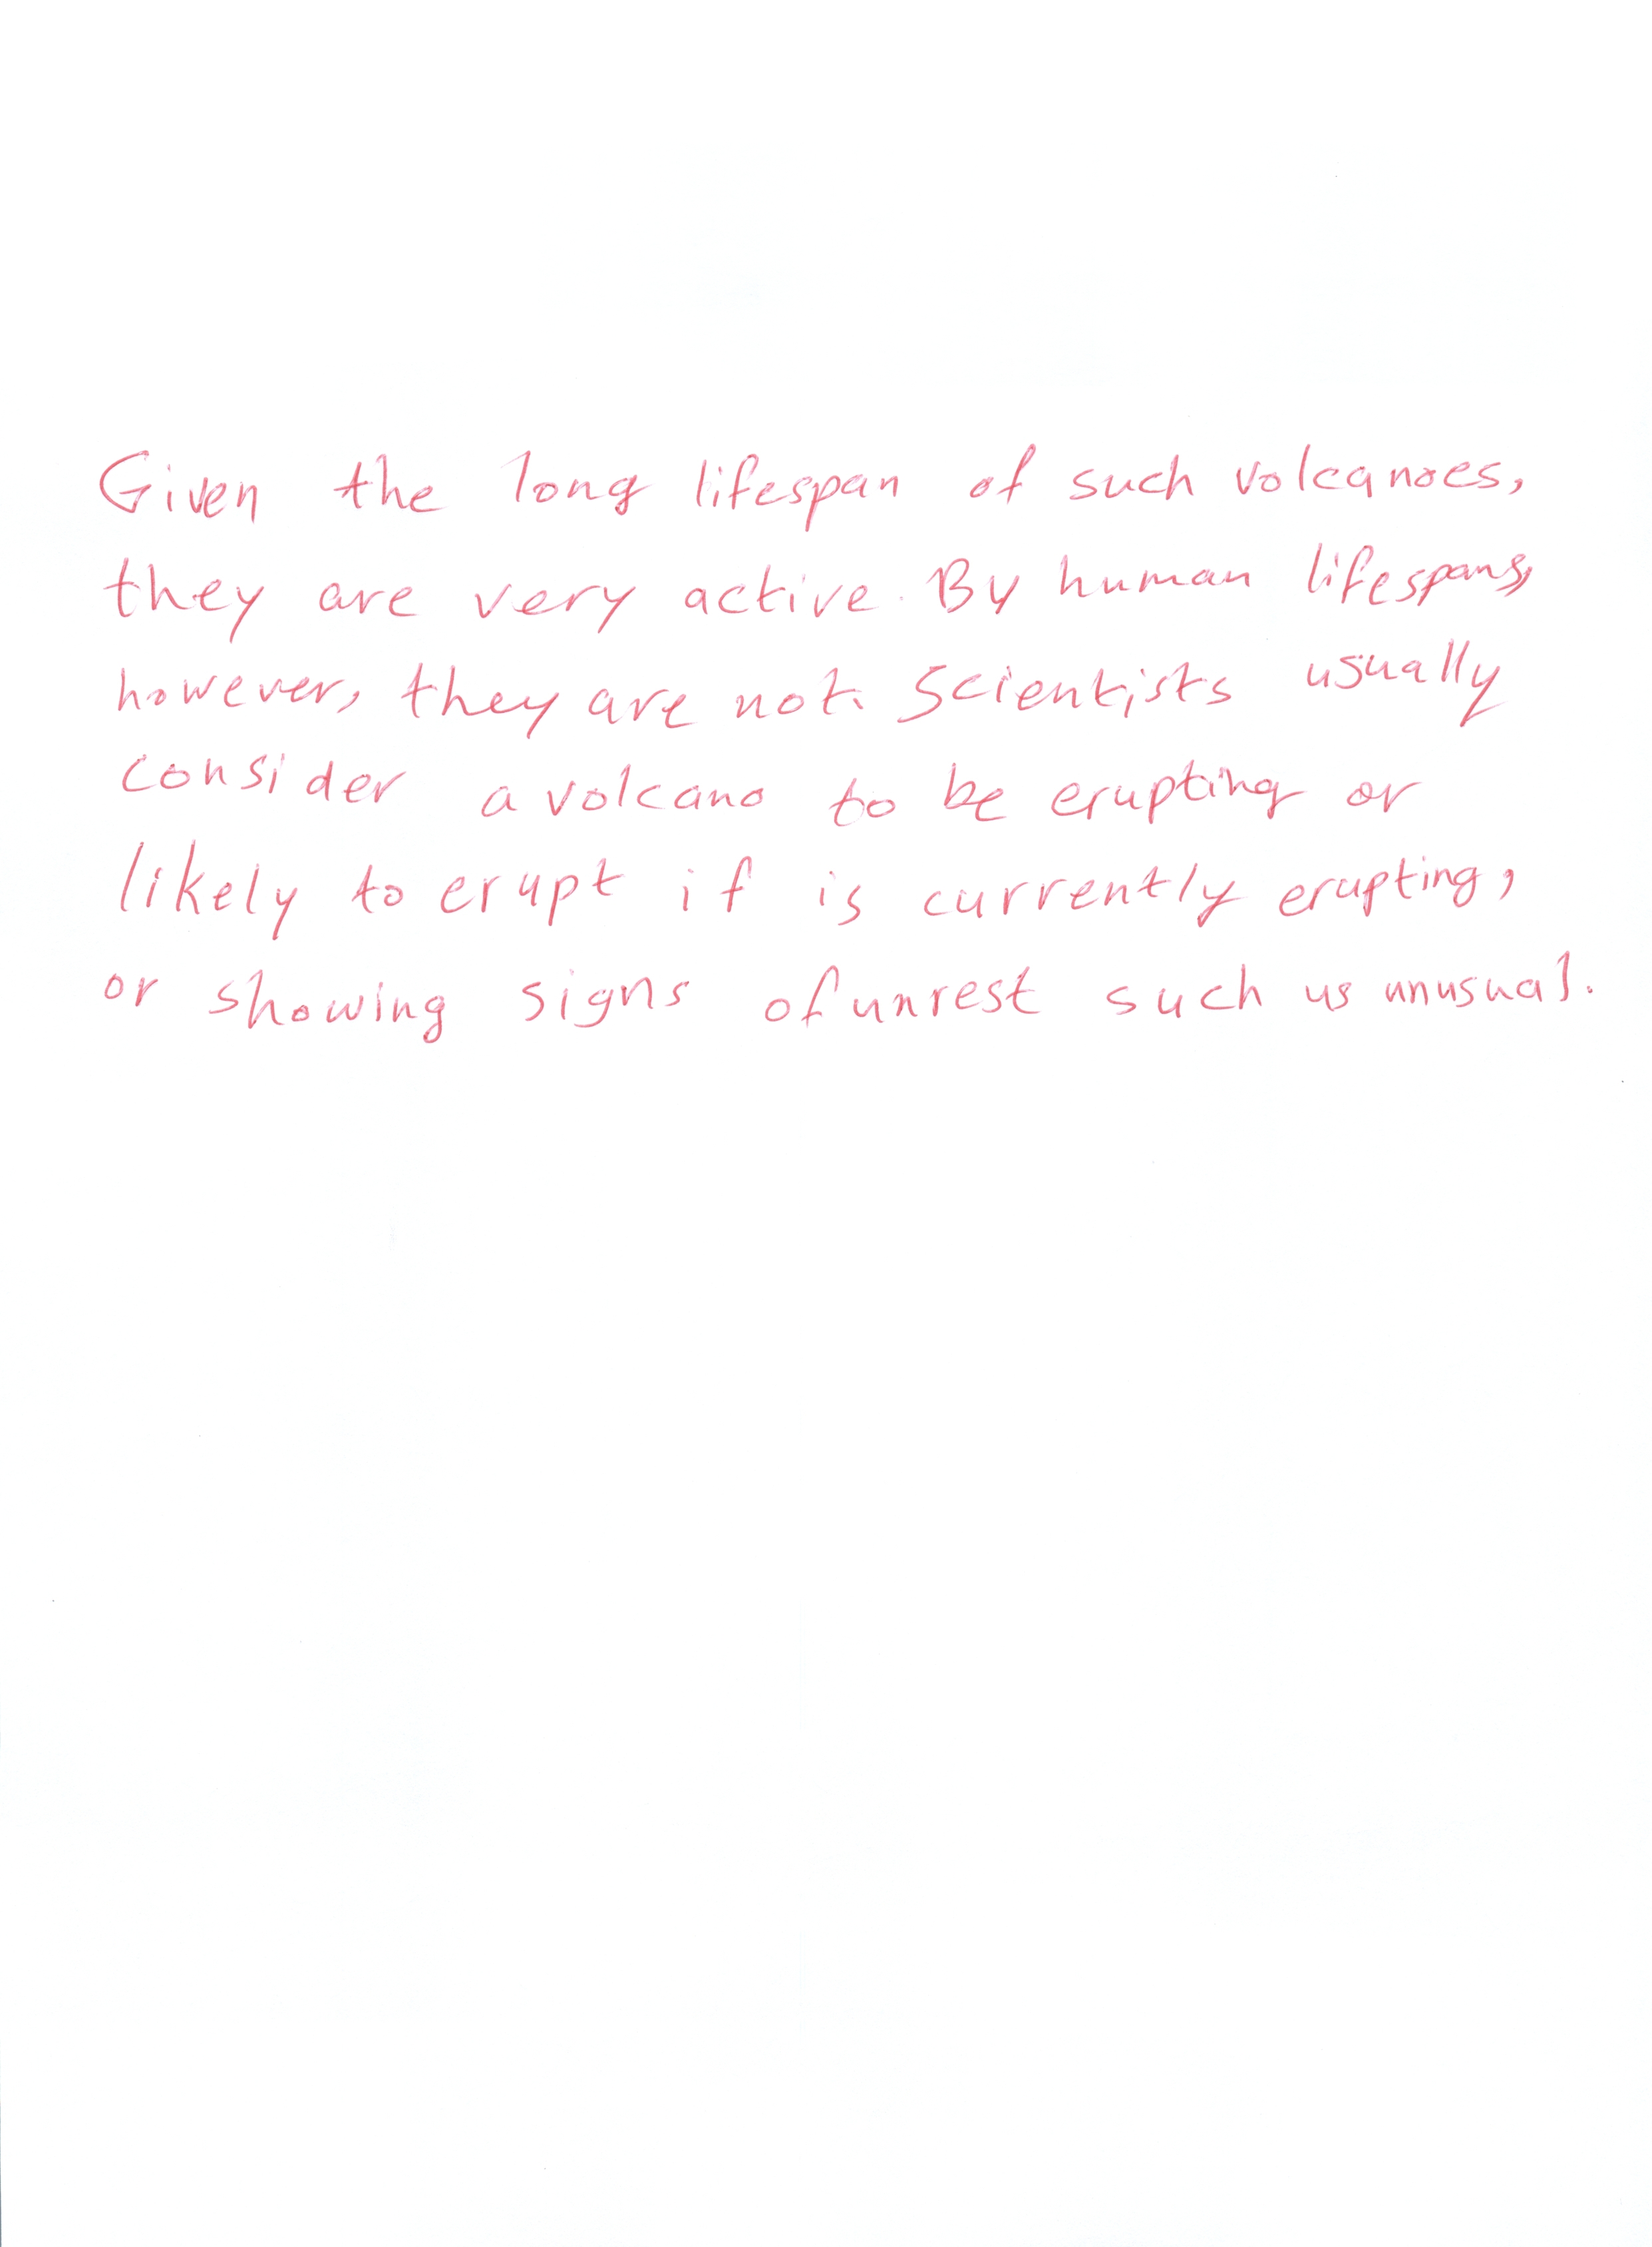 Given the long lifespan of such volcanoes,
they are very active. By human lifespans,
however, they are not. Scientists usually
consider a volcano to be erupting or
likely to erupt if is currently erupting,
or showing signs of unrest such us unusual.